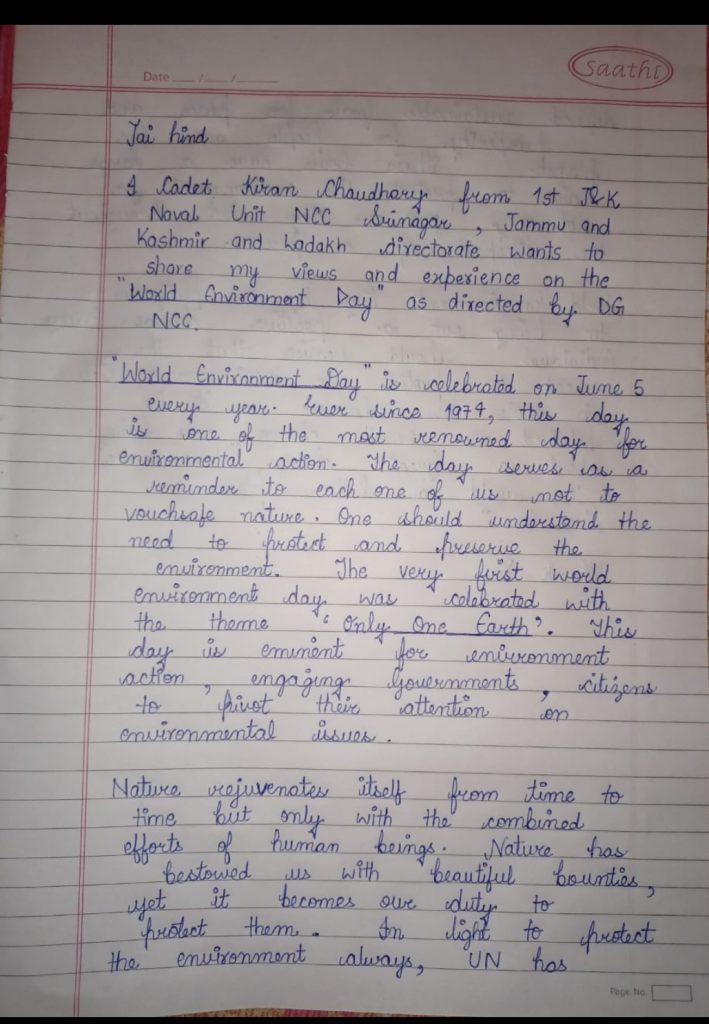 Saathi
Date ___/___/_____
Jai hind
I Cadet Kiran Chaudhary from 1st J&K
Naval Unit NCC Srinagar, Jammu and
Kashmir and Ladakh directorate wants to
share my views and experience on the
"World Environment Day" as directed by DG
NCC.
"World Environment Day" is celebrated on June 5
every year. Ever since 1974, this day
is one of the most renowned day for
environmental action. The day serves as a
reminder to each one of us not to
vouchsafe nature. One should understand the
need to protect and preserve the
environment. The very first world
environment day was celebrated with
the theme "Only One Earth". This
day is eminent for environment
action, engaging Governments, citizens
to pivot their attention on
environmental issues.
Nature rejuvenates itself from time to
time but only with the combined
efforts of human beings. Nature has
bestowed us with beautiful bounties,
yet it becomes our duty to
protect them. In light to protect
the environment always, UN has
Page No.